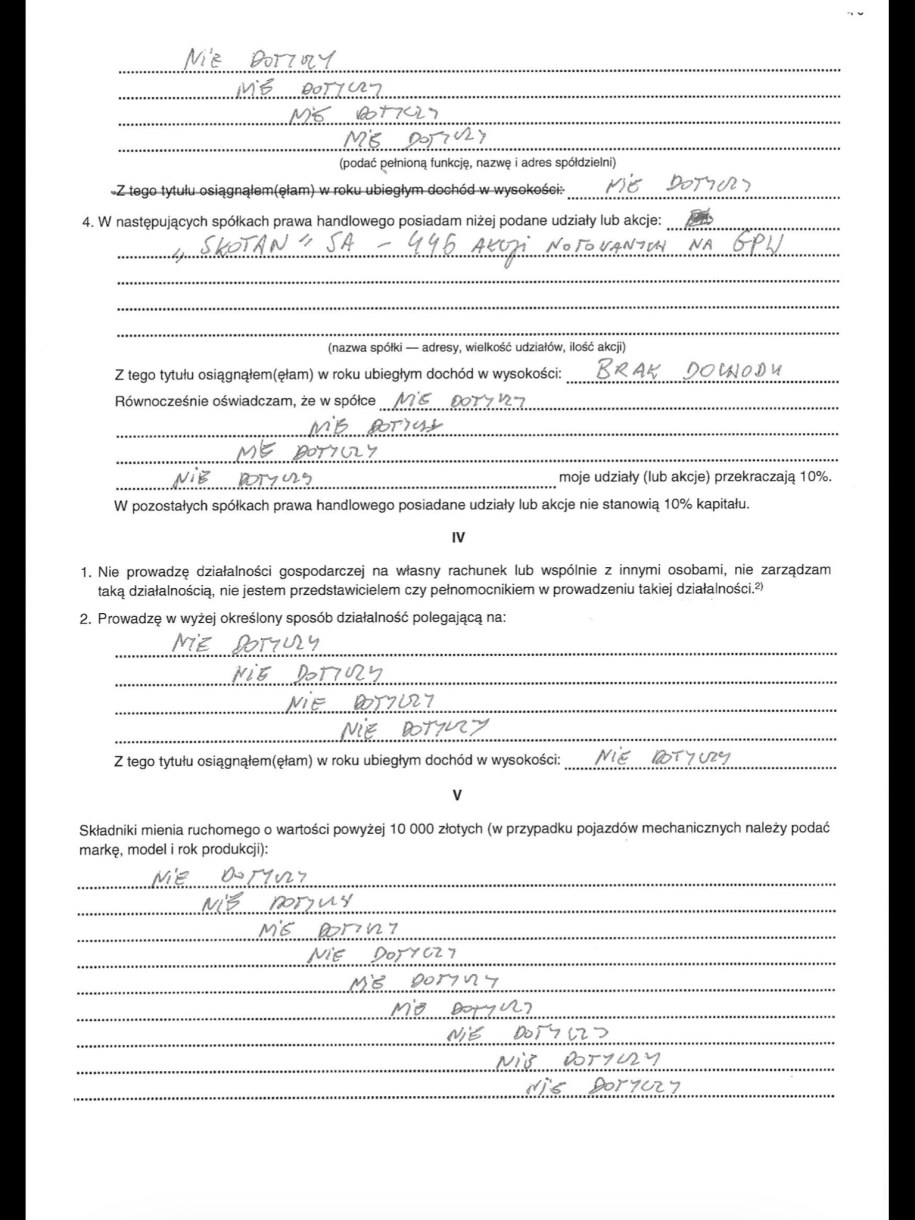 NIE DOTYCZY
NIE DOTYCZY
NIE DOTYCZY
NIE DOTYCZY
(podać pełnioną funkcję, nazwę i adres spółdzielni)
Z tego tytułu osiągnąłem(ęłam) w roku ubiegłym dochód w wysokości: NIE DOTYCZY
4. W następujących spółkach prawa handlowego posiadam niżej podane udziały lub akcje:
„SKOTAN" SA – 446 AKCJI NOTOWANYCH NA GPW
(nazwa spółki — adresy, wielkość udziałów, ilość akcji)
Z tego tytułu osiągnąłem(ęłam) w roku ubiegłym dochód w wysokości: BRAK DOCHODU
Równocześnie oświadczam, że w spółce NIE DOTYCZY
NIE DOTYCZY
NIE DOTYCZY
NIE DOTYCZY moje udziały (lub akcje) przekraczają 10%.
W pozostałych spółkach prawa handlowego posiadane udziały lub akcje nie stanowią 10% kapitału.
IV
1. Nie prowadzę działalności gospodarczej na własny rachunek lub wspólnie z innymi osobami, nie zarządzam
taką działalnością, nie jestem przedstawicielem czy pełnomocnikiem w prowadzeniu takiej działalności.²⁾
2. Prowadzę w wyżej określony sposób działalność polegającą na:
NIE DOTYCZY
NIE DOTYCZY
NIE DOTYCZY
NIE DOTYCZY
Z tego tytułu osiągnąłem(ęłam) w roku ubiegłym dochód w wysokości: NIE DOTYCZY
V
Składniki mienia ruchomego o wartości powyżej 10 000 złotych (w przypadku pojazdów mechanicznych należy podać
markę, model i rok produkcji):
NIE DOTYCZY
NIE DOTYCZY
NIE DOTYCZY
NIE DOTYCZY
NIE DOTYCZY
NIE DOTYCZY
NIE DOTYCZY
NIE DOTYCZY
NIE DOTYCZY